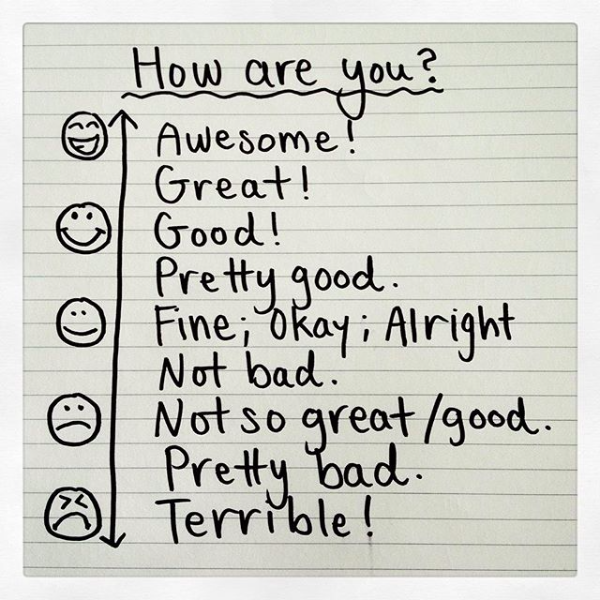 How are you?
Awesome!
Great!
Good!
Pretty good.
Fine; Okay; Alright
Not bad.
Not so great/good.
Pretty bad.
Terrible!